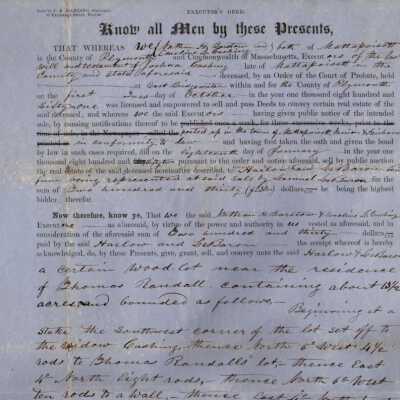 EXECUTOR'S DEED.
Know all Men by these Presents,
THAT WHEREAS We, Nathan H. Barstow and
both of Mattapoisett
in the County of Plymouth and Commonwealth of Massachusetts, Executors of the last
Will and testament of Joshua Cushing late of Mattapoisett in the
County and State aforesaid deceased, by an Order of the Court of Probate, held
at East Bridgewater within and for the County of Plymouth
on the first Tuesday October in the year one thousand eight hundred and
Sixty one was licensed and empowered to sell and pass Deeds to convey certain real estate of the
said deceased, and whereas we the said Executors having given public notice of the intended
sale, by causing notifications thereof to be published once a week, for three weeks prior to the
posted up in the town of Mattapoisett
in conformity to law and having first taken the oath and given the bond
by law in such cases required, did on the eighteenth day of January in the year one
thousand eight hundred and pursuant to the order and notice aforesaid, sell by public auction
the real estate of the said deceased hereinafter described, to Harlow and LeBaron
being represented at said sale by Lemuel LeBaron for the
sum of Two hundred and thirty dollars, he being the highest
bidder therefor.
Now therefore, know ye, That we the said Nathan H. Barstow &
Executors as aforesaid, by virtue of the power and authority in us vested as aforesaid, and in
consideration of the aforesaid sum of Two hundred and thirty dollars
paid by the said Harlow and LeBaron the receipt whereof is hereby
acknowledged, do, by these Presents, give, grant, sell, and convey unto the said Harlow & LeBaron
a certain Wood lot near the residence
of Thomas Randall, containing about 13½
acres and bounded as follows - Beginning at a
stake the Southwest corner of the lot set off to
the widow Cushing, thence North 6° West 4½
rods to Thomas Randall's lot, thence East
4° North eight rods, thence North 6° West
ten rods to a Wall, thence East